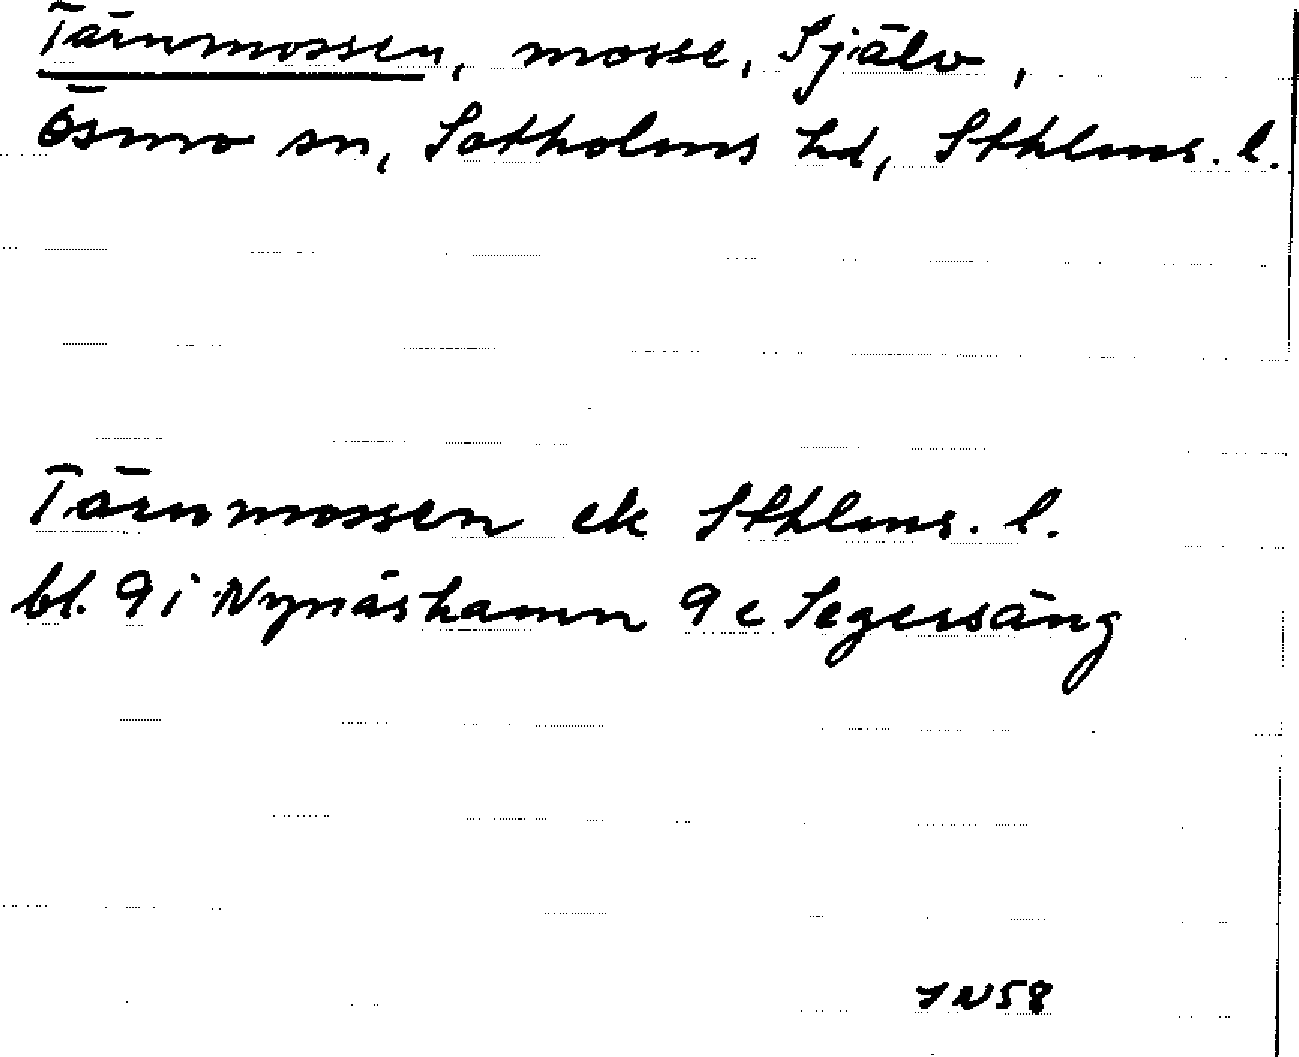 Tärnmossen, mosse, Själv,
Ösmo sn, Sotholms hd, Sthlms. l.
Tärnmossen ek Sthlms. l.
bl. 9 i Nynäshamn 9 c Segersäng
58